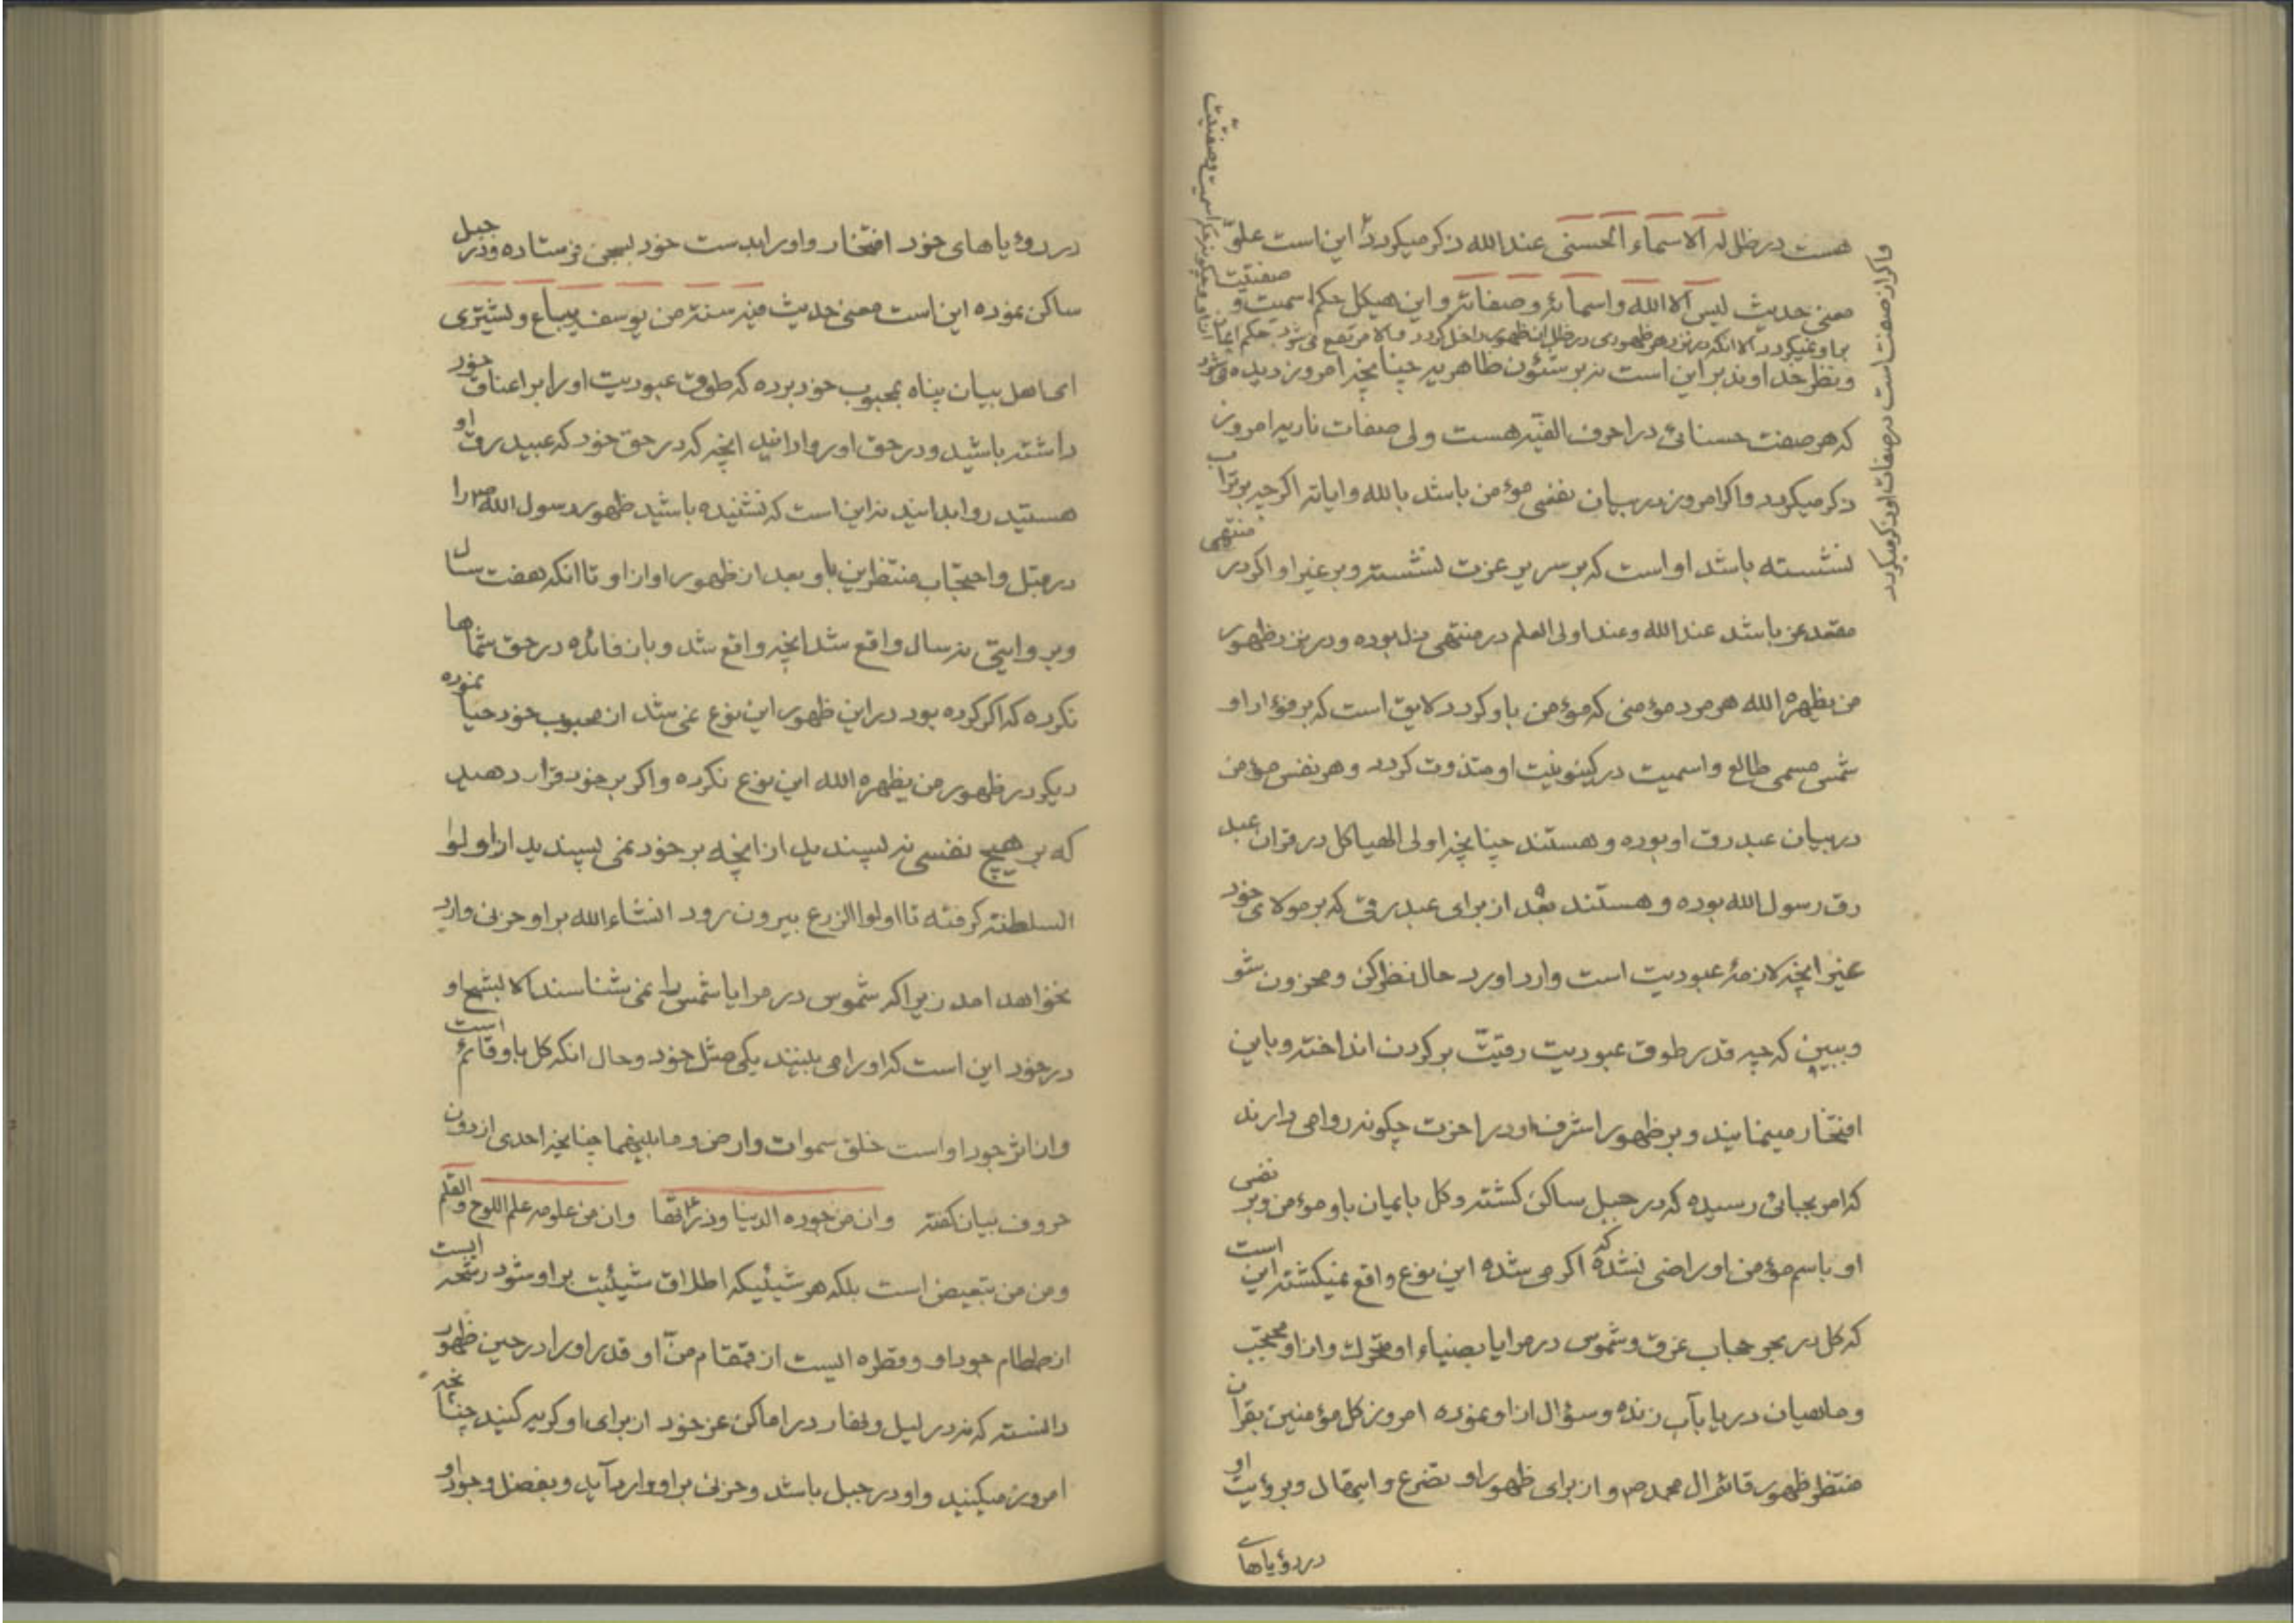 هست در ظل له الاسماء الحسنی عند الله ذکر میگردد این است علو
معنی حدیث لیس الا الله و اسمائه و صفاته و این هیکل حکم اسمیت و صفتیت
باو نمیگردد الا انکه در نزد هر ظهوری در ظل ان ظهور داخل گردد و الا مرتفع می شود حکم ایمان
و نظر خداوند بر این است نه بر شئون ظاهریه چنانچه امروز دیده می شود
که هر صفت حسنائی در احرف الفیه هست ولی صفات ناریه امروز
ذکر میگردد و اگر امروز در بیان نفسی مؤمن باشد بالله و ایاته اگر چه بر تراب
نشسته باشد او است که بر سریر عزت نشسته و بر غیر او اگر در منتهی
مقعد عز باشد عند الله و عند اولی العلم در منتهی ذل بوده و در نزد ظهور
من یظهره الله هر مرد مؤمنی که مؤمن باو گردد لایق است که بر فؤاد او
شمس مسمی طالع و اسمیت در کینونیت او متذوت گردد و هر نفس مؤمن
در بیان عبد رق او بوده و هستند چنانچه اولی الهیاکل در قران عبد
رق رسول الله بوده و هستند بعد از برای عبد رقی که بر مولای خود
غیر انچه لازمهٔ عبودیت است وارد اورد حال نظر کن و محزون شو
و ببین که چه قدر طوق عبودیت رقیت بر گردن انداخته و باین
افتخار مینمایند و بر ظهور اشرف او در اخرت چگونه روا می دارند
که امر بجائی رسیده که در جبل ساکن گشته و کل بایمان باو مؤمن و بر نفسی
او باسم مؤمن او راضی نشده که اگر می شده این نوع واقع نمیگشته این است
که کل در بحر حجاب غرق و شموس در مرایا بضیاء او متحرک و از او محتجب
و ماهیان دریا بآب زنده و سؤال از او نموده امروز کل مؤمنین بقران
منتظر ظهور قائم ال محمد ص و از برای ظهور او تضرع و ابتهال و برؤیت او
در رؤیاهای
و اگر از صفت است در صفات او ذکر میگردد
در رؤیاهای خود افتخار و او را بدست خود بسجن فرستاده و در جبل
ساکن نموده این است معنی حدیث فیه سنة من یوسف یباع و یشتری
ای اهل بیان پناه بمحبوب خود برده که طوق عبودیت او را بر اعناق خود
داشته باشید و در حق او روا دانید انچه که در حق خود که عبید رق او
هستید روا بدانید نه این است که نشنیده باشید ظهور رسول الله ص را
در قبل و احتجاب منتظرین باو بعد از ظهور او از او تا انکه هفت سال
و بروایتی نه سال واقع شد انچه واقع شد و بان فائده در حق شماها
نکرده که اگر کرده بود در این ظهور این نوع نمی شد از محبوب خود حیا نموده
دیگر در ظهور من یظهره الله این نوع نکرده و اگر بر خود قرار دهید
که بر هیچ نفسی نه پسندید از انچه بر خود نمی پسندید از اولوا
السلطنة گرفته تا اولوا الزرع بیرون رود انشاء الله بر او حزنی وارد
نخواهد امد زیرا که شموس در مرایا شمس را نمی شناسند الا بشبح او
در خود این است که او را می بینند یکی مثل خود و حال انکه کل باو قائم است
و از اثر جود او است خلق سموات و ارض و ما بینهما چنانچه احدی از دون
حروف بیان گفته و ان من جوده الدنیا و ضرتها و ان من علومه علم اللوح و القلم
و من من تبعیض است بلکه هر شیئیکه اطلاق شیئیت بر او شود رشحه ایست
از طمطام جود او و قطره ایست از قمقام من او قدر او را در حین ظهور
دانسته که نه در لیل و نهار در اماکن عز خود از برای او گریه کنید چنانچه
امروز میکنید و او در جبل باشد و حزنی بر او وارد آید و بفضل و جود او